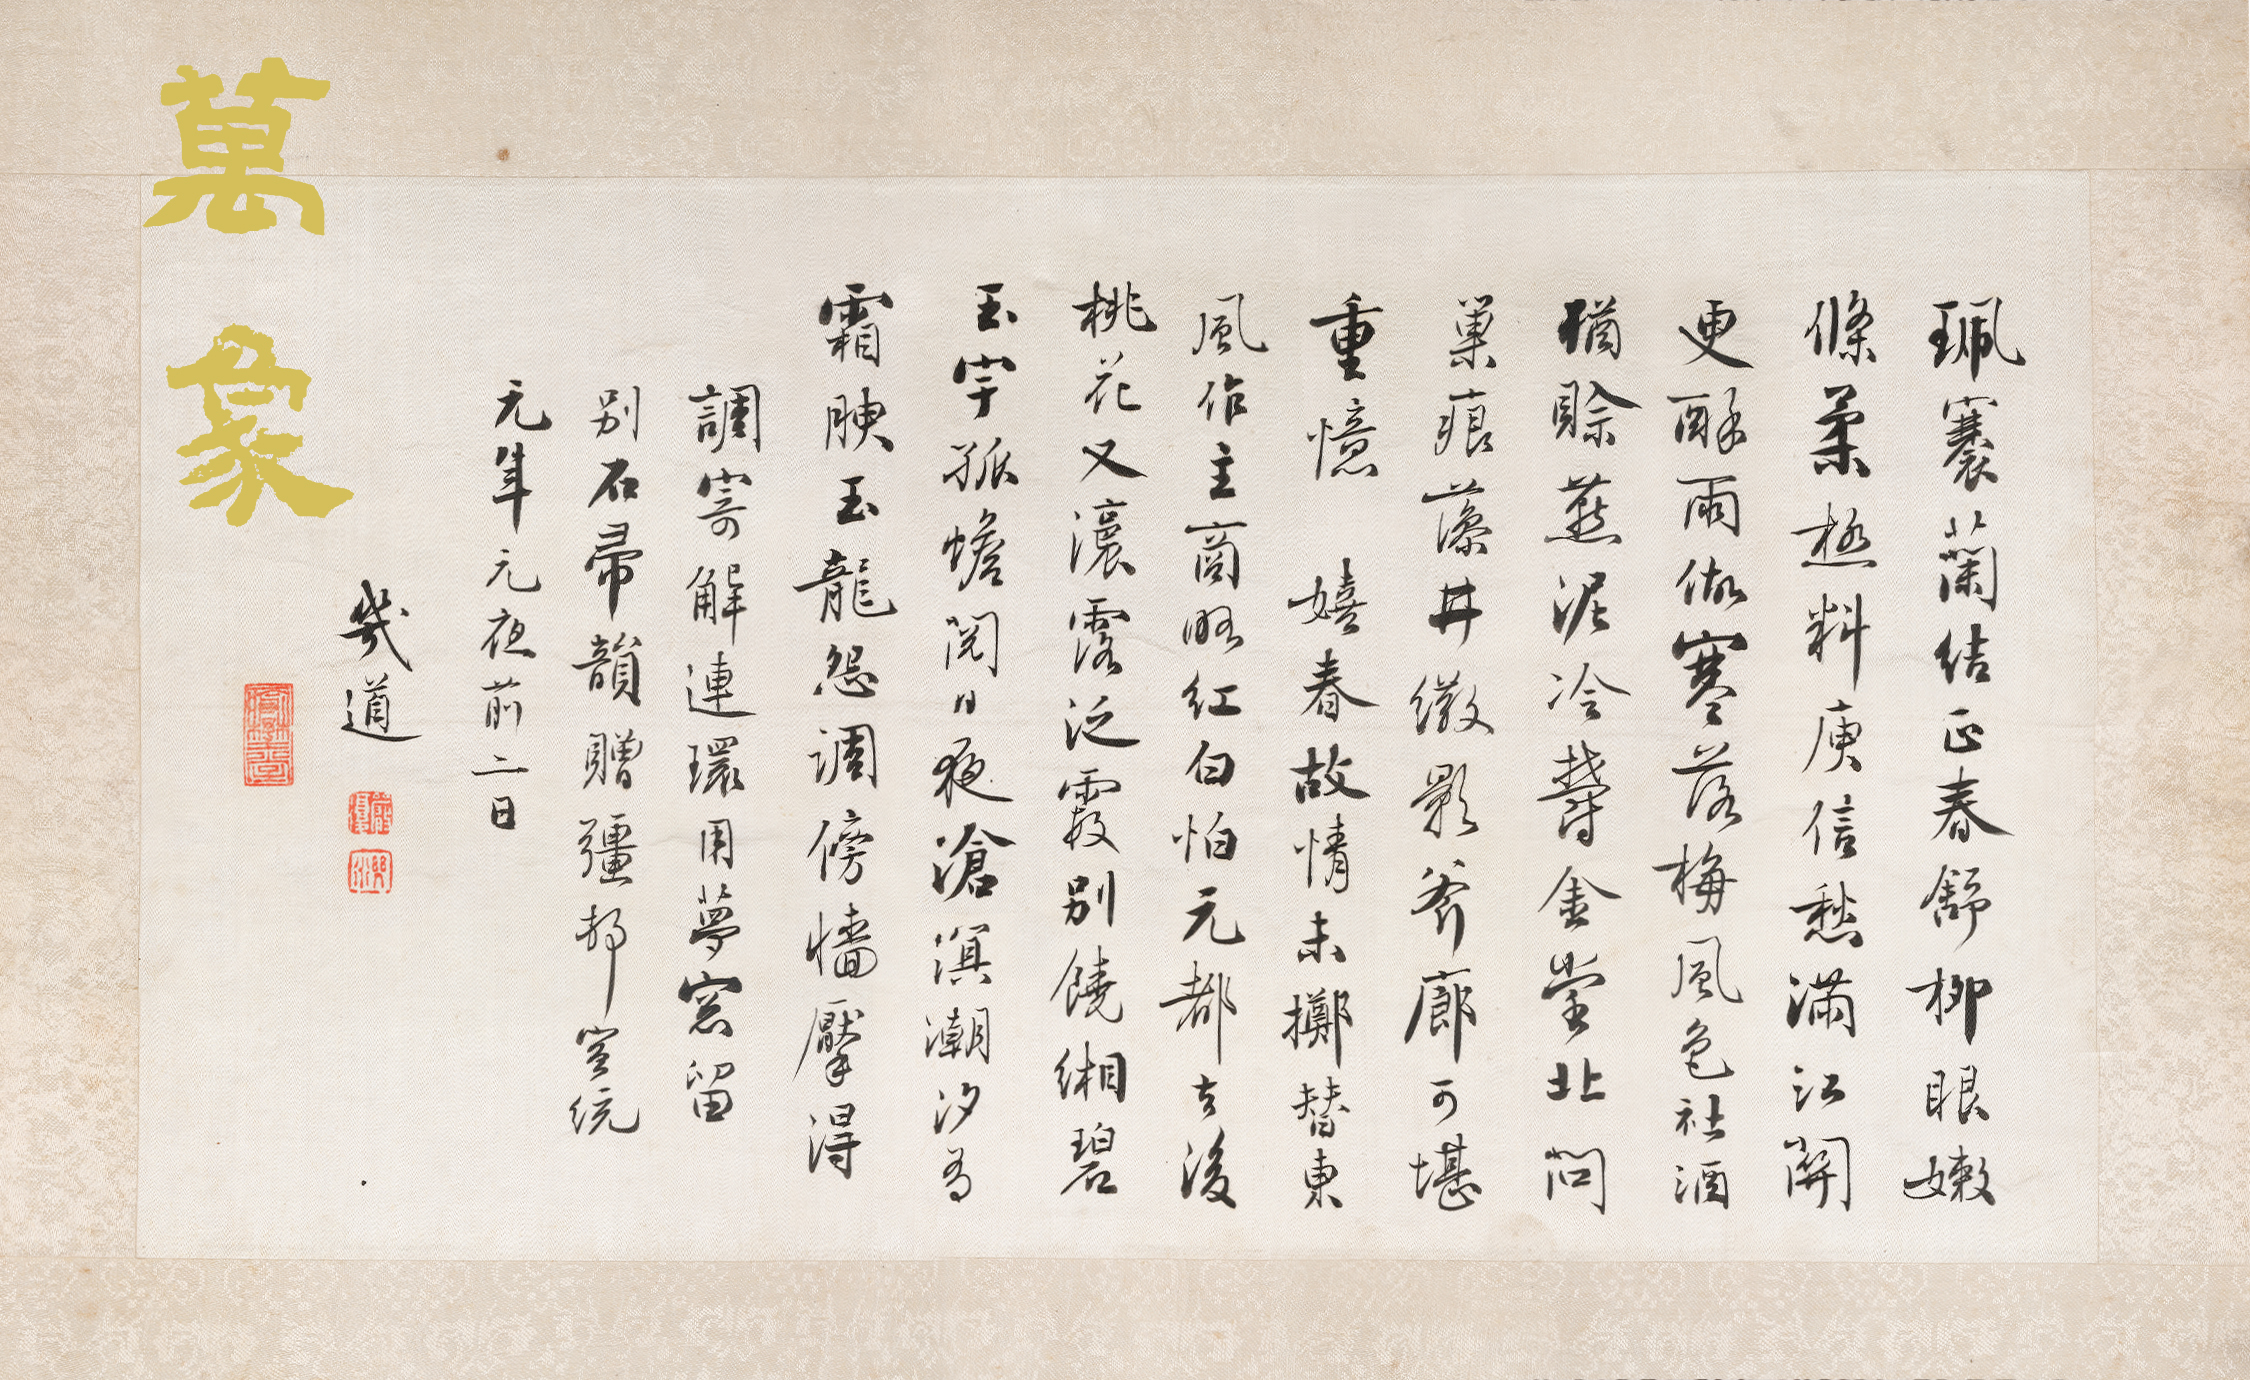 珮褰蘭結正春舒柳眼嫩
條柔極料庾信愁滿江關
更酥雨做寒落梅風色社酒
猶賒燕泥冷鬱金堂北問
巢痕藻井徽影斧廊可堪
重憶 嬉春故情未擲替東
風作主商略紅白怕元都去後
桃花又瀼露泛霞別饒緗碧
玉宇孤蟾閱日夜滄溟潮汐為
霜腴玉龍怨調傍牆擪得
調寄解連環用夢窗留
別石帚韻贈彊邨宣統
元年元夜前二日
幾道
萬象